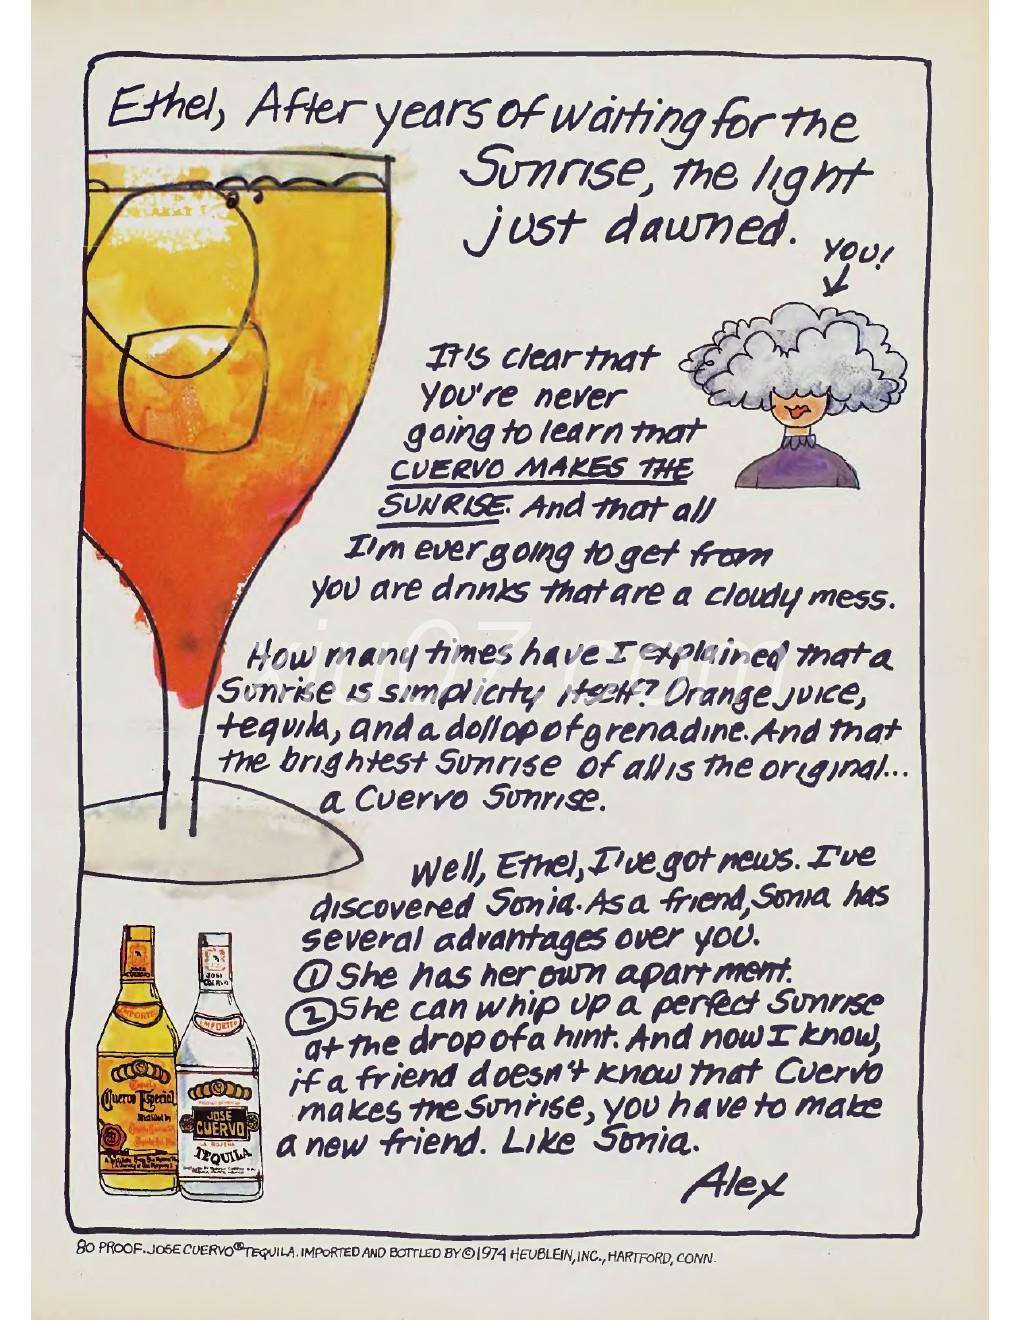 Ethel, After years of waiting for the
Sunrise, the light
just dawned.
YOU!
It's clear that
you're never
going to learn that
CUERVO MAKES THE
SUNRISE. And that all
I'm ever going to get from
you are drinks that are a cloudy mess.
How many times have I explained that a
Sunrise is simplicity itself? Orange juice,
tequila, and a dollop of grenadine. And that
the brightest Sunrise of all is the original...
a Cuervo Sunrise.
Well, Ethel, I've got news. I've
discovered Sonia. As a friend, Sonia has
several advantages over you.
① She has her own apartment.
② She can whip up a perfect Sunrise
at the drop of a hint. And now I know,
if a friend doesn't know that Cuervo
makes the Sunrise, you have to make
a new friend. Like Sonia.
Alex
JOSE CUERVO
IMPORTED
Cuervo Especial
JOSE CUERVO
IMPORTED
JOSE
CUERVO
TEQUILA
80 PROOF. JOSE CUERVO® TEQUILA. IMPORTED AND BOTTLED BY © 1974 HEUBLEIN, INC., HARTFORD, CONN.